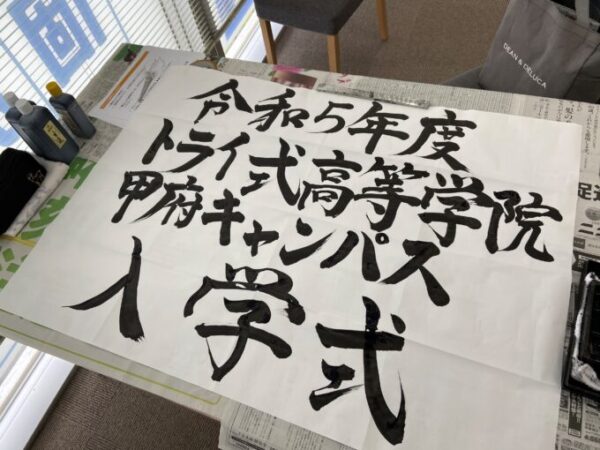 令和5年度
トライ式高等学院
甲府キャンパス
入学式
DEAN & DELUCA